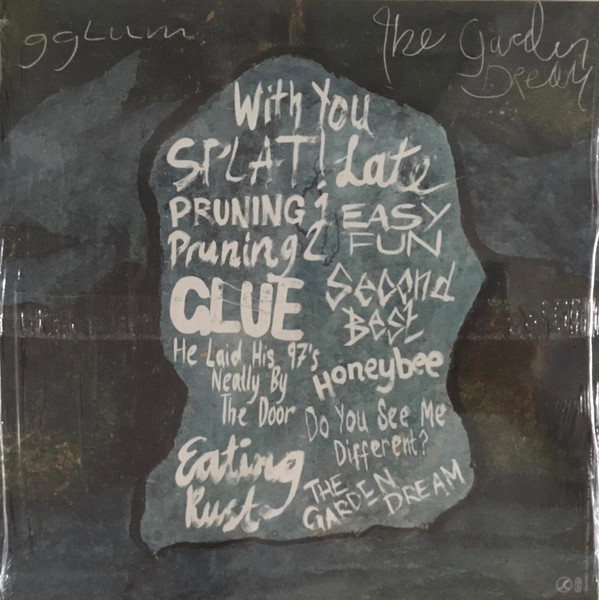 gglum
The Garden
Dream
With You
SPLAT! Late
PRUNING 1
Pruning 2
EASY
FUN
GLUE
Second
Best
He Laid His 97's
Neatly By
The Door
Honeybee
Do You See Me
Different?
Eating
Rust
THE
GARDEN
DREAM